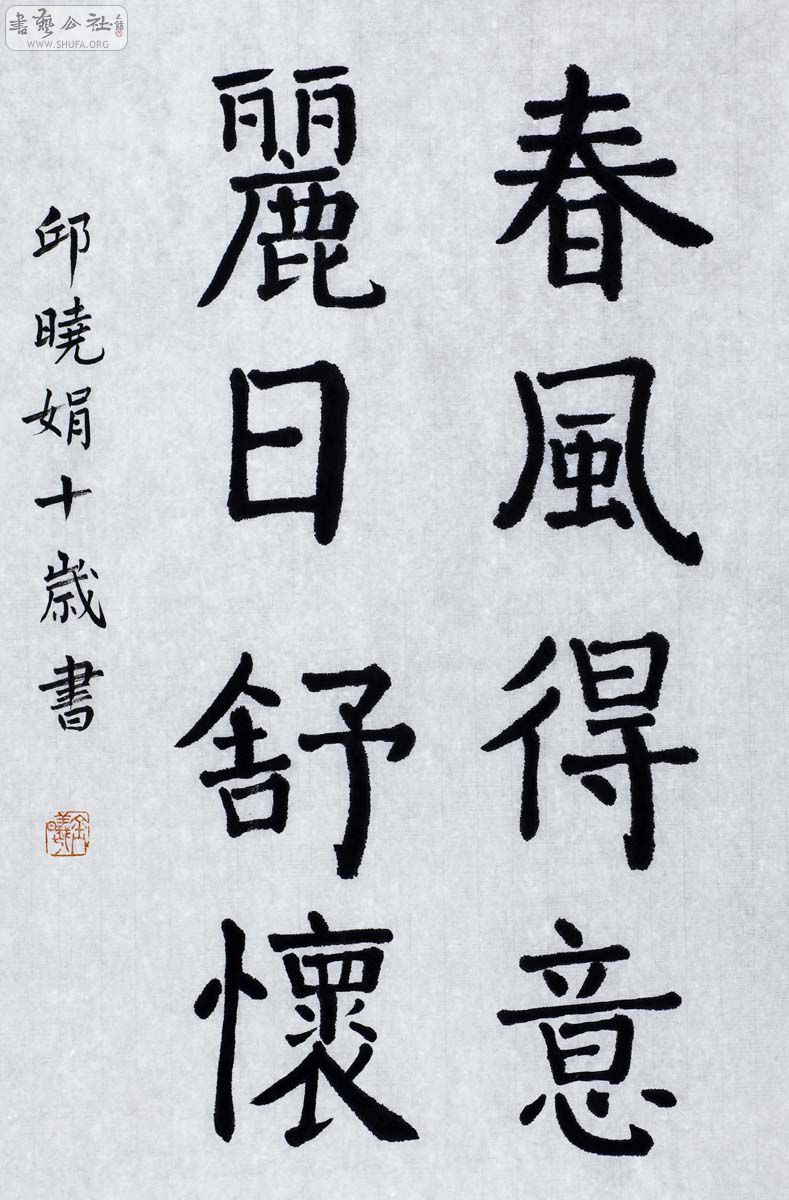 春風得意
麗日舒懷
邱曉娟十歲書
書藝公社
WWW.SHUFA.ORG